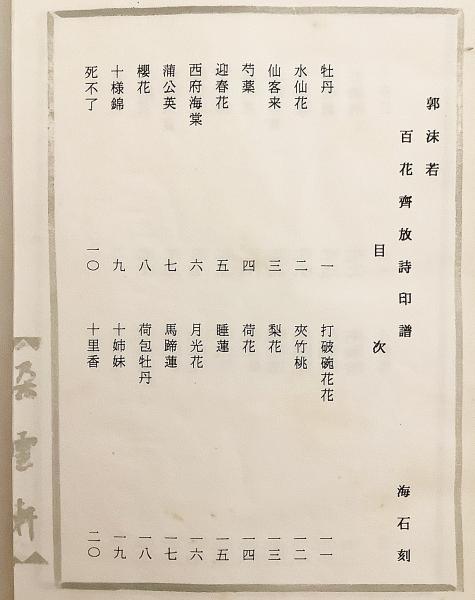 郭沫若
百花齊放詩印譜 海石刻
目次
牡丹 一 打破碗花花 一一
水仙花 二 夾竹桃 一二
仙客来 三 梨花 一三
芍藥 四 荷花 一四
迎春花 五 睡蓮 一五
西府海棠 六 月光花 一六
蒲公英 七 馬蹄蓮 一七
櫻花 八 荷包牡丹 一八
十様錦 九 十姉妹 一九
死不了 一〇 十里香 二〇
朵雲軒